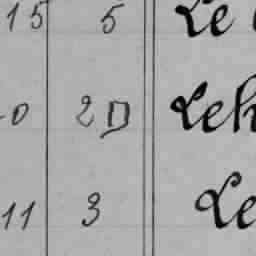 15 5 Le
0 2D Leh
11 3 Le